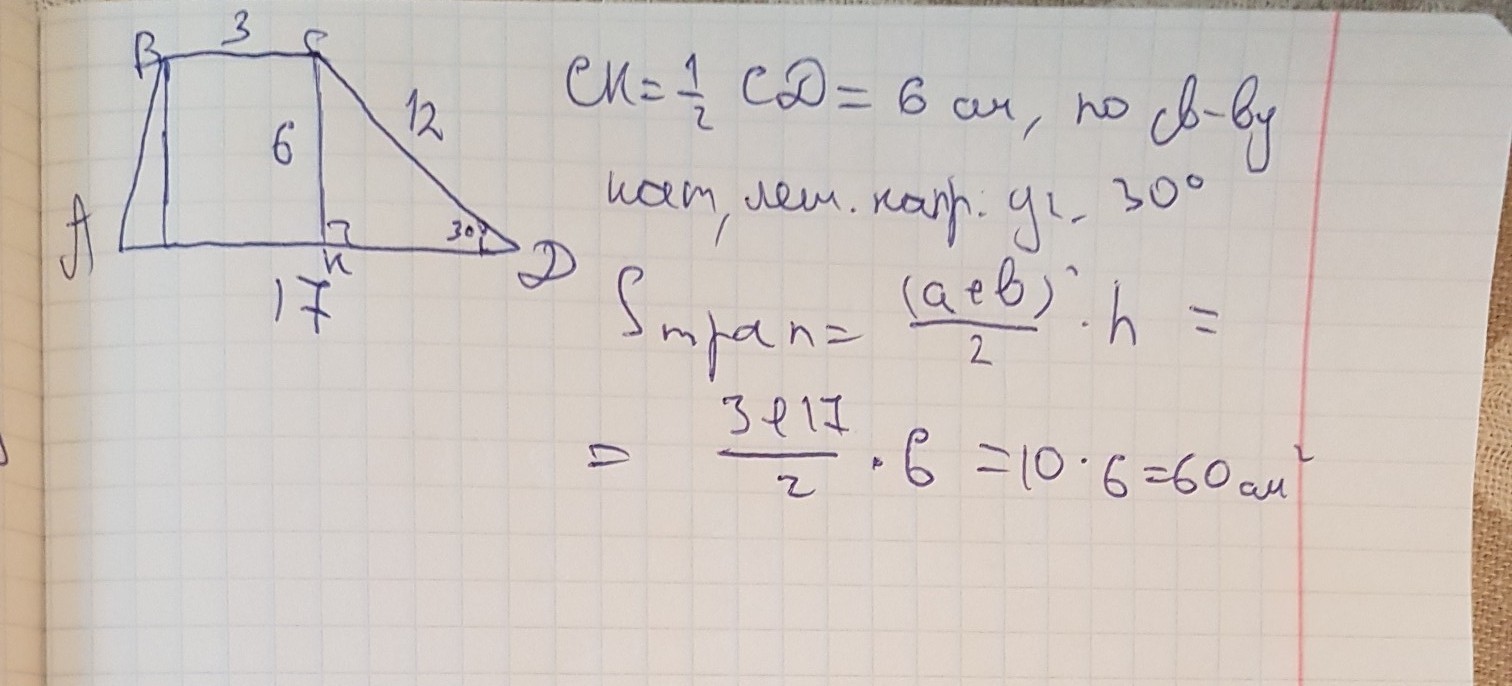 B 3 C
12
6
A 30° D
K
17
CK = 1/2 CD = 6 см, по св-ву
кат, леж. напр. уг. 30°
Sтрап = (a+b)/2 · h =
= 3+17/2 · 6 = 10 · 6 = 60 см²